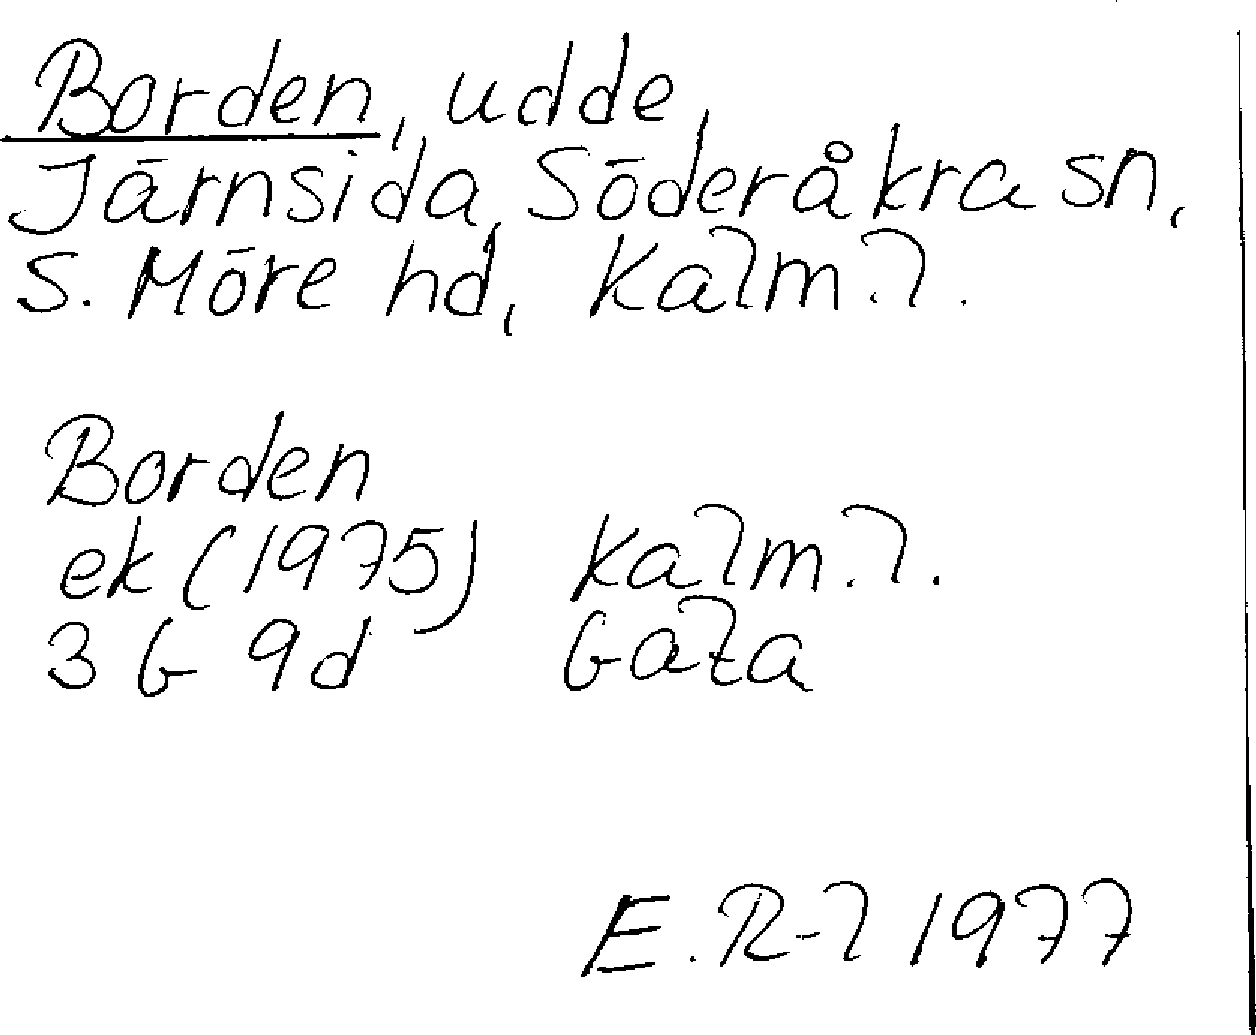 Borden, udde,
Järnsida, Söderåkra sn,
S. Möre hd, Kalm.l.
Borden
ek (1975) Kalm.l.
3 G 9d Gata
E.R-l 1977